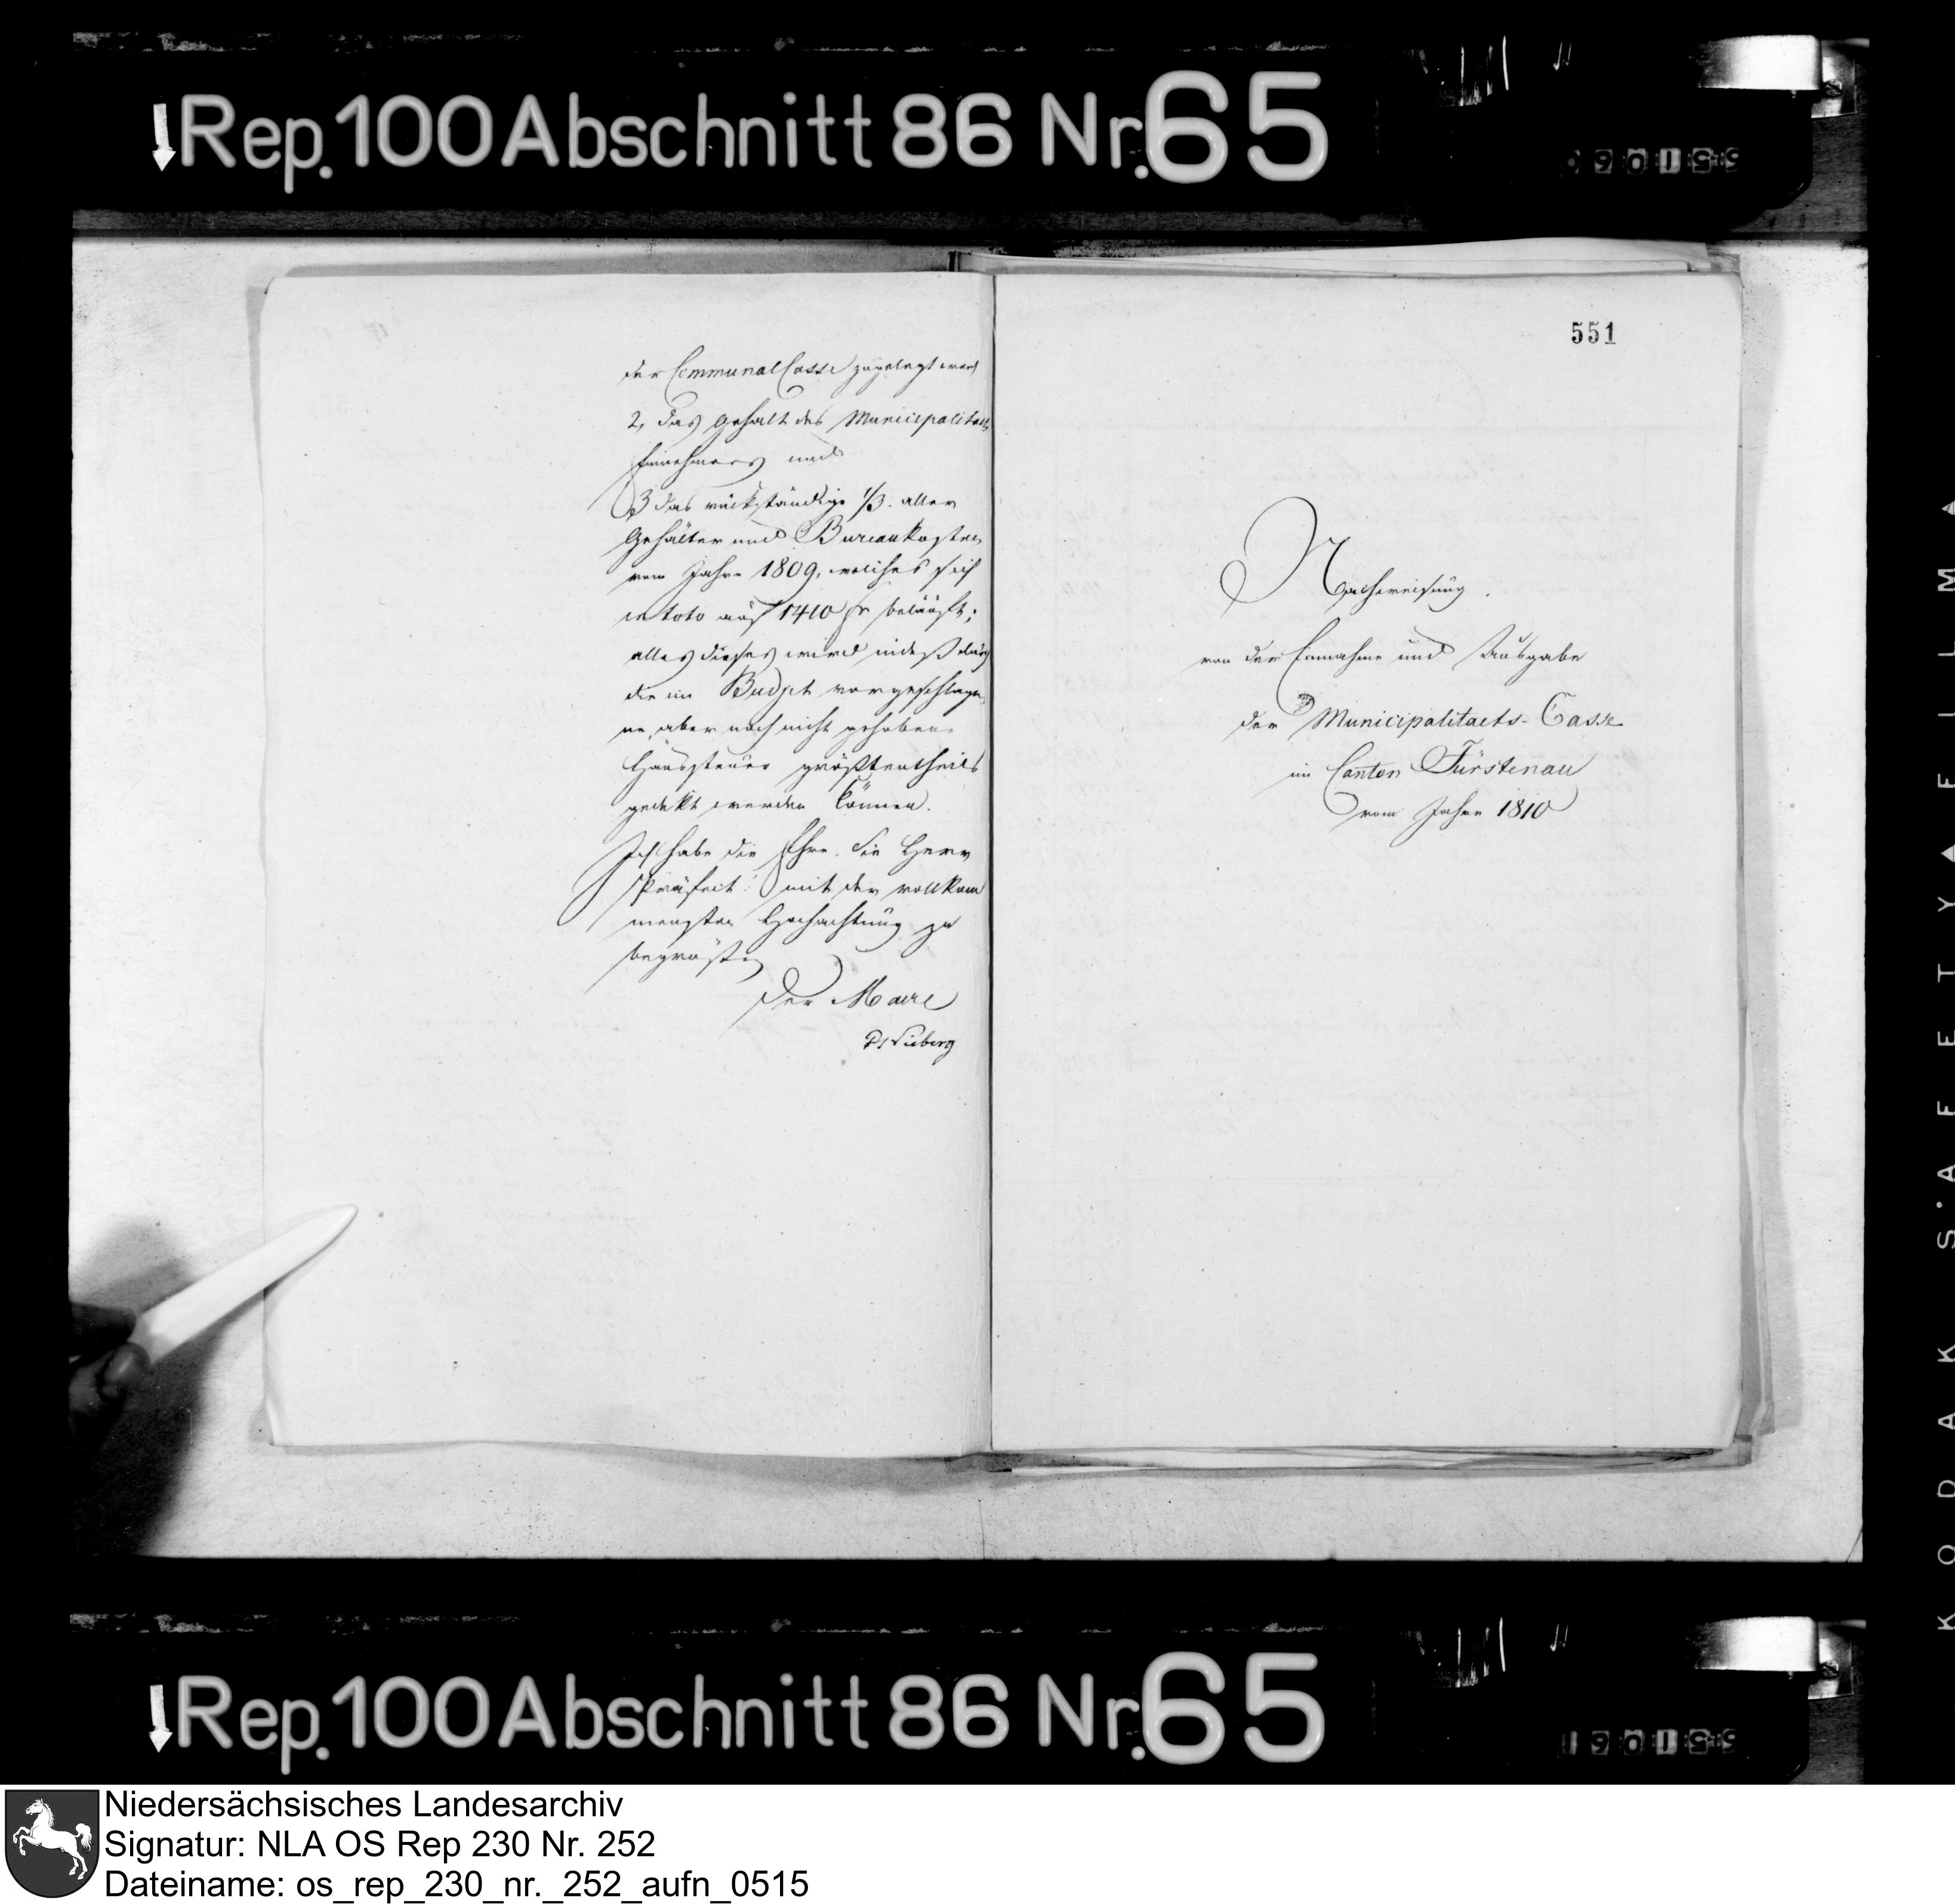 Rep. 100 Abschnitt 86 Nr. 65
der Communal Casse zugelegt werd
2, das Gehalt des Municipalitaets
Einnehmers und
3 das rückständige 1/3. aller
Gehälter und Bureaukosten
vom Jahre 1809, welches sich
in toto auf 1410 fr beläuft;
alles dieses wird indeß durch
die im Budjet vorgeschlage
ne, aber noch nicht gehobene
Haussteuer größtentheils
gedekt werden können.
Ich habe die Ehre. Sie Herr
Präfect! mit der vollkom
mensten Hochachtung zu
begrüßen
Der Maire
551
Nachweisung.
von der Einnahme und Ausgabe
der Municipalitaets-Casse
im Canton Fürstenau
vom Jahre 1810
KODAK S.AFETY▲FILM▲
Rep. 100 Abschnitt 86 Nr. 65
Niedersächsisches Landesarchiv
Signatur: NLA OS Rep 230 Nr. 252
Dateiname: os_rep_230_nr._252_aufn_0515